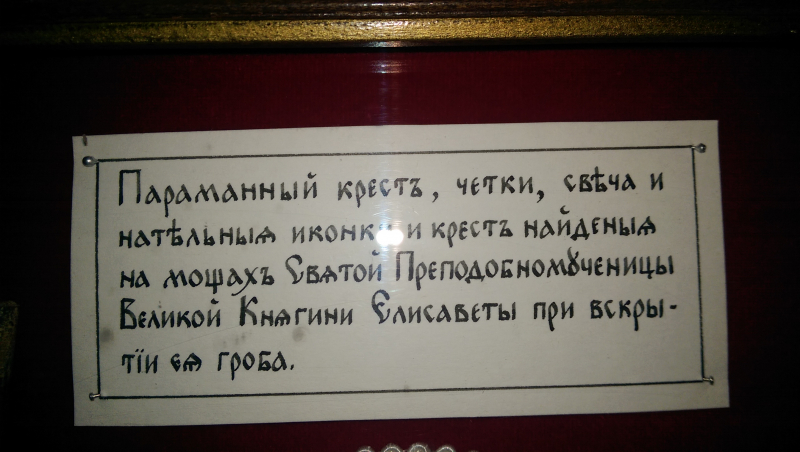 Параманный крестъ, четки, свѣча и
натѣльныѧ иконки и крестъ найденыѧ
на мощахъ Свѧтой Преподобномꙋченицы
Великой Кнѧгини Єлисаветы при вскры-
тїи еѧ гроба.